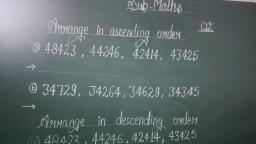 Sub. Maths
Arrange in ascending order
ⓐ 48423, 44246, 42414, 43425
→
ⓑ 34729, 34264, 34629, 34345
→
Arrange in descending order
48423, 44246, 42414, 43425